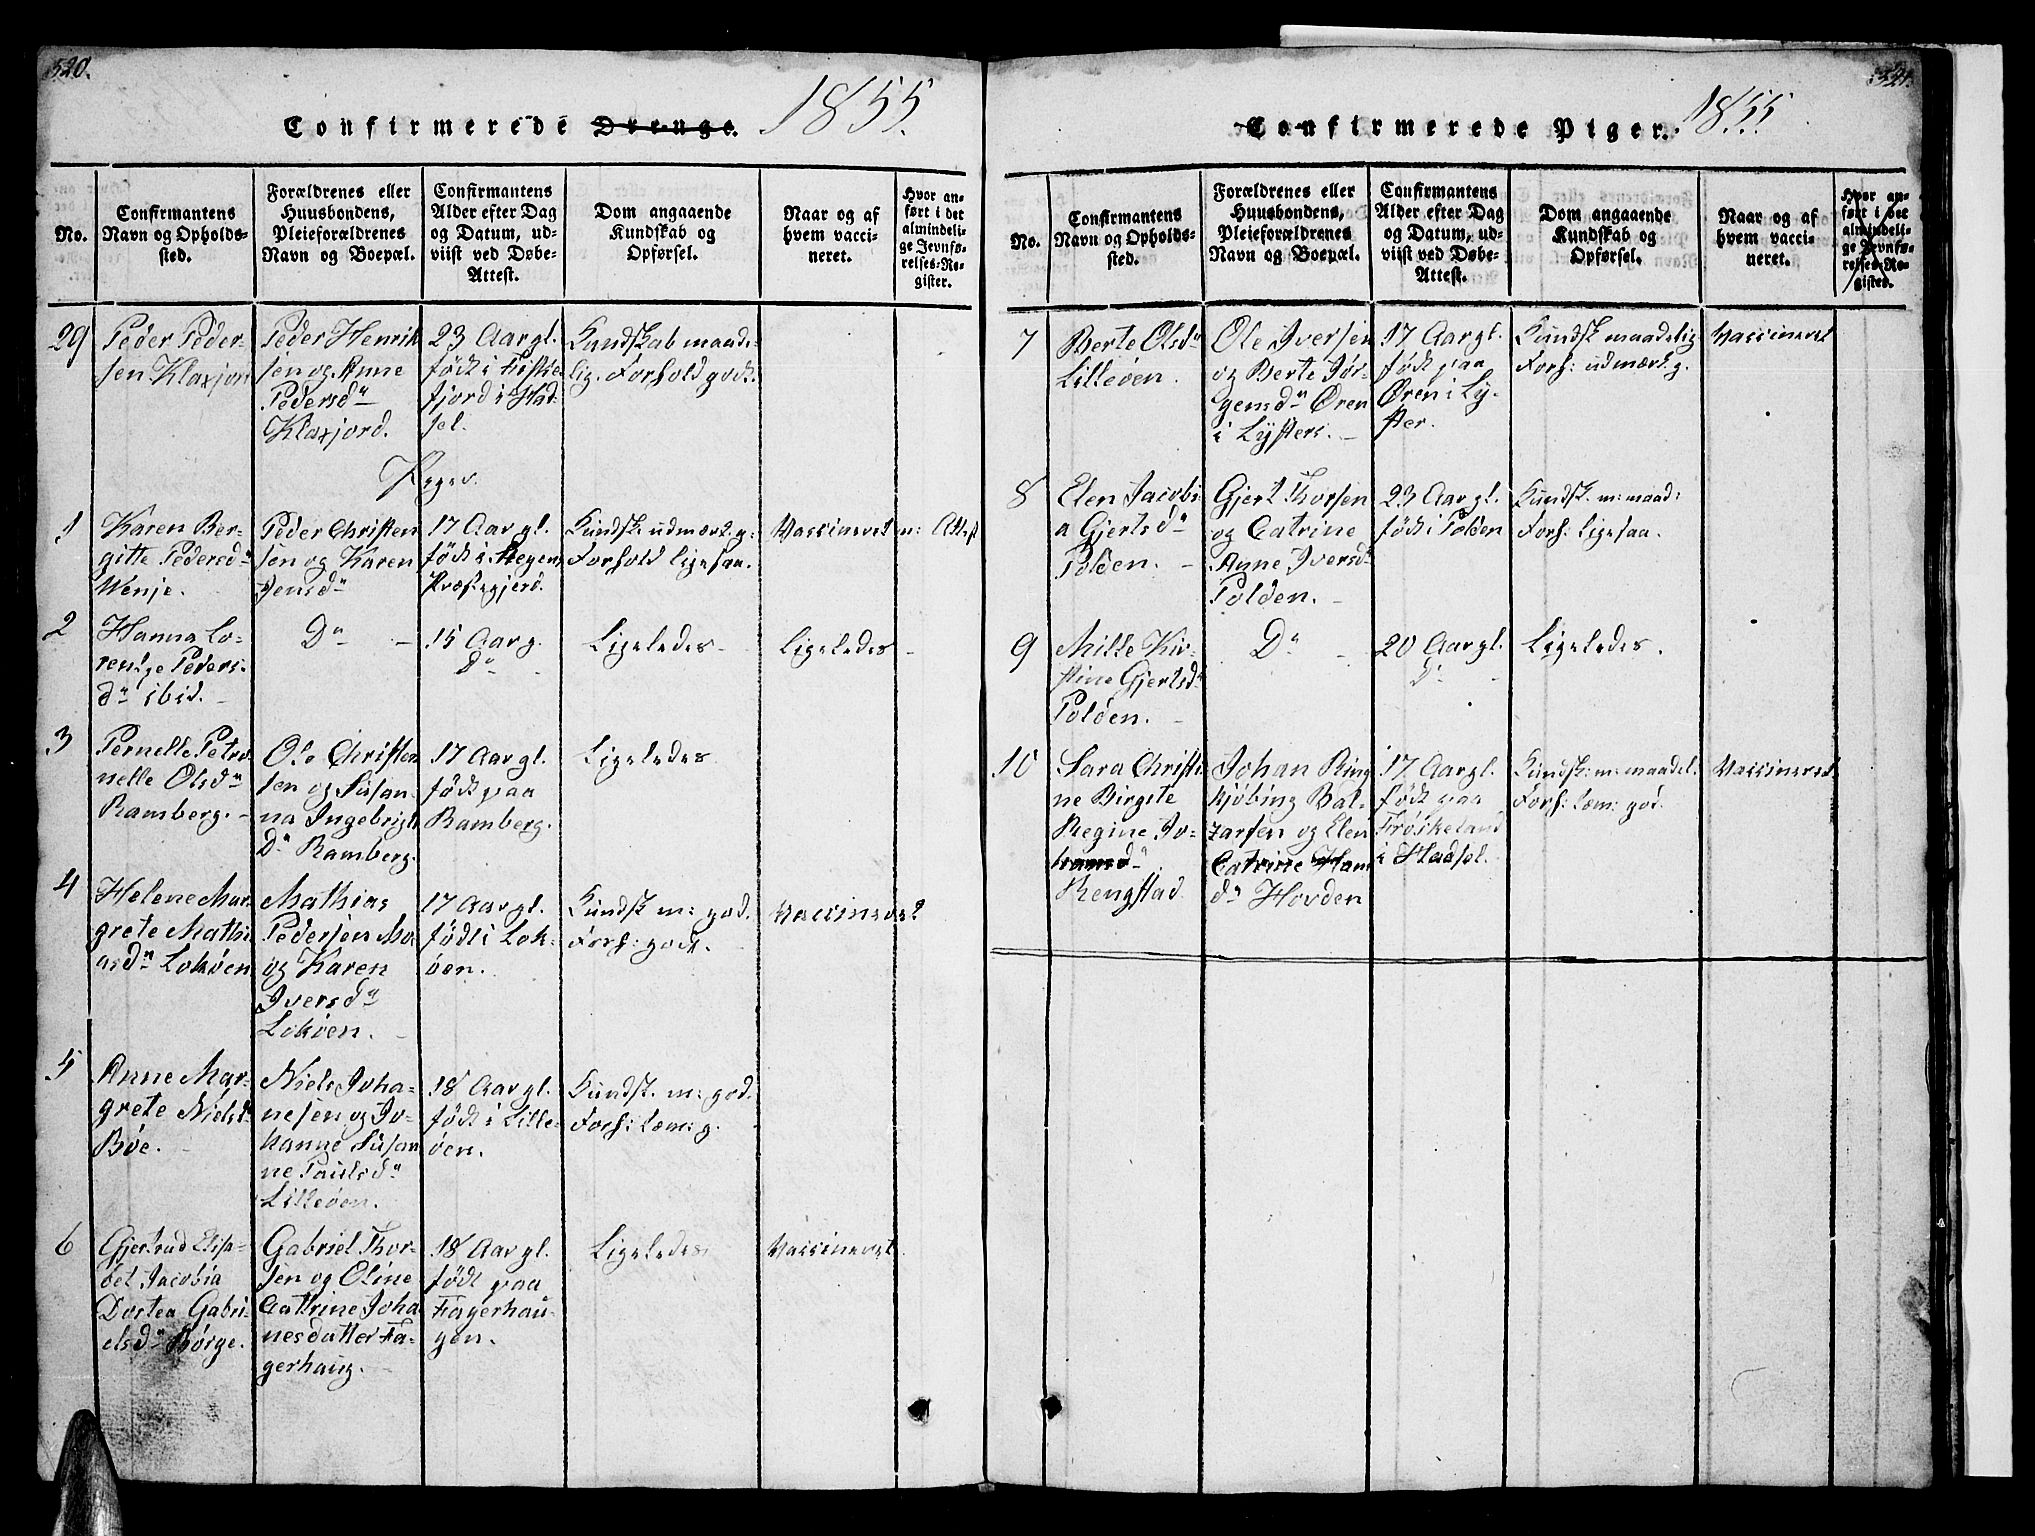 520.
Confirmerede Drenge. 1855.
No.
Confirmantens
Navn og Opholds-
sted.
Forældrenes eller
Huusbondens,
Pleieforældrenes
Navn og Boepæl.
Confirmantens
Alder efter Dag
og Datum, ud-
viist ved Døbe-
Attest.
Dom angaaende
Kundskab og
Opførsel.
Naar og af
hvem vacci-
neret.
Hvor an-
ført i det
almindeli-
ge Jevnfø-
relses-Re-
gister.
29
Peder Peder-
sen Klaxjord
Peder Henrik
sen og Anne
Pedersdn
Klaxjord.
23 Aar gl.
født i Fiskfie
fjord i Had-
sel.
Kundskab maade-
lig. Forhold godt.
Piger.
1
Karen Ber-
gitte Pedersdn
Wenje.
Peder Christen
sen og Karen
Jensdn
17 Aar gl.
født i Stegens
Præstegjeld.
Kundsk. udmærk. g:
Forhold ligesaa.
Vaccineret m: Attest
2
Hanna Lo-
rentze Peders-
dn ibid.
Dn
15 Aar g.
Dn
Ligeledes
Ligeledes
3
Pernelle Petro
nelle Olsdn
Ramberg.
Ole Christen
sen og Susan-
na Ingebrigt
Dn Ramberg.
17 Aar gl.
født paa
Ramberg.
Ligeledes
4
Helene Mar
grete Mathi
asdn Lokøen
Mathias
Pedersen Mo
og Karen
Iversdn
Lokøen.
17 Aar gl.
født i Lok-
øen.
Kundsk m: god.
Forh: godt.
Vaccineret
5
Anne Mar-
grete Nielsd
Bøe.
Niels Joha-
nesen og Jo-
hanne Susan
ne Paulsdn
Lilleøen.
18 Aar gl.
født i Lille-
øen.
Kundsk. m: god.
Forh: tem: g.
6
Gjertrud Elisa-
bet Jacobia
Dortea Gabri-
elsdn Børge.
Gabriel Thor-
sen og Oline
Cathrine Joha
nesdatter Fa-
gerhaug.
18 Aar gl.
født paa
Fagerhau-
gen.
Ligeledes
Vaccineret
521.
Confirmerede Piger. 1855.
No.
Confirmantens
Navn og Opholds-
sted.
Forældrenes eller
Huusbondens,
Pleieforældrenes
Navn og Boepæl.
Confirmantens
Alder efter Dag
og Datum, ud-
viist ved Døbe-
Attest.
Dom angaaende
Kundskab og
Opførsel.
Naar og af
hvem vacci-
neret.
Hvor an-
ført i det
almindeli-
ge Jevnfø-
relses-Re-
gister.
7
Berte Olsdn
Lilleøen.
Ole Iversen
og Berte Jør-
gensdn Øren
i Lysters.
17 Aar gl.
født paa
Øren i Ly-
ster.
Kundsk maadelig
Forh: udmærk. g.
Vaccineret
8
Elen Jacobi-
a Gjertsdn
Polden.
Gjert Thorsen
og Catrine
Anne Iversd
Polden.
23 Aar gl.
født i Polden
Kundsk. m: maad:
Forh: ligesaa.
9
Mille Kir-
stine Gjertsdn
Polden.
Dn
20 Aar gl.
Dn
Ligeledes.
10
Sara Christi
ne Birgite
Regine Jo-
hansdn
Rengstad.
Johan Ring
kjøbing Bal-
zarsen og Elen
Catrine Hans
dn Hovden
17 Aar gl.
født paa
Frøskeland
i Hadsel.
Kundsk: m: maadel.
Forh: tem: god.
Vaccineret